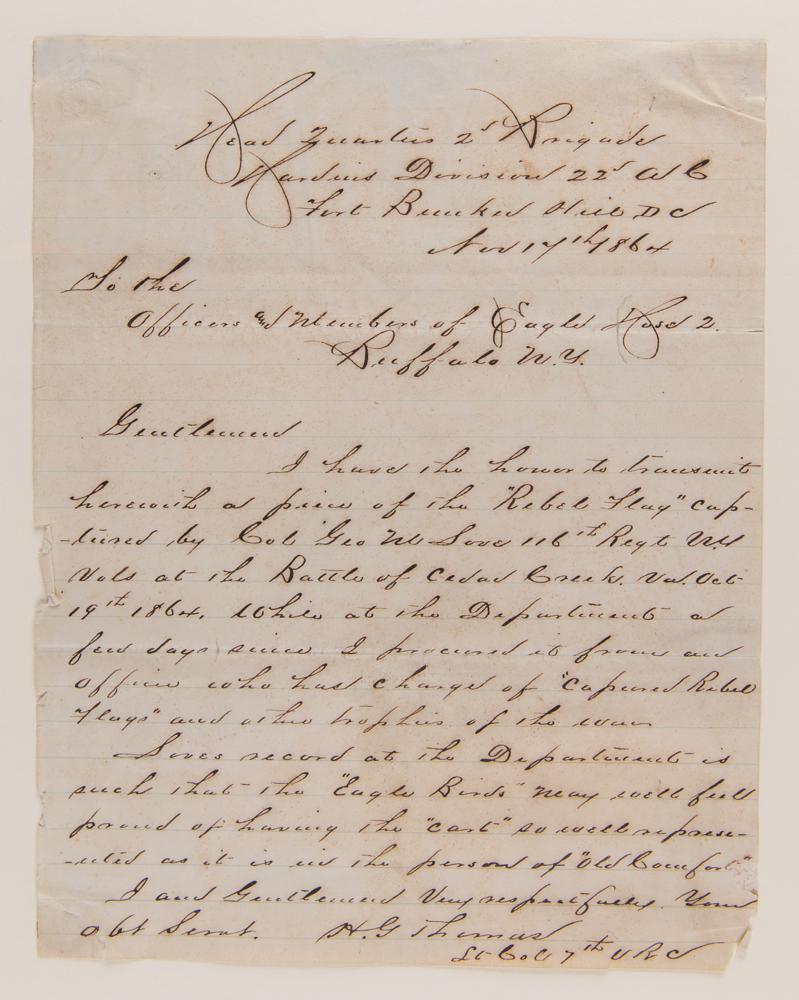 Head Quarters 2d Brigade
Hardins Division 22d A C
Fort Bunker Hill D C
Nov 17th 1864
To the
Officers and Members of Eagle Hose 2.
Buffalo N.Y.
Gentlemen
I have the honor to transmit
herewith a piece of the "Rebel Flag" cap-
-tured by Col Geo M Love 116th Regt N.Y
Vols at the Battle of Cedar Creek. Va. Oct
19th 1864. While at the Department a
few days since I procured it from an
officer who has charge of "Capured Rebel
Flags" and other trophies of the war
Loves record at the Department is
such that the "Eagle Birds" may well feel
proud of having the "cart" so well represe-
-nted as it is in the person of "Old Comfort"
I am Gentlemen Very respectfully. Your
obt Servt. H. G Thomas
Lt Col 7th V R C